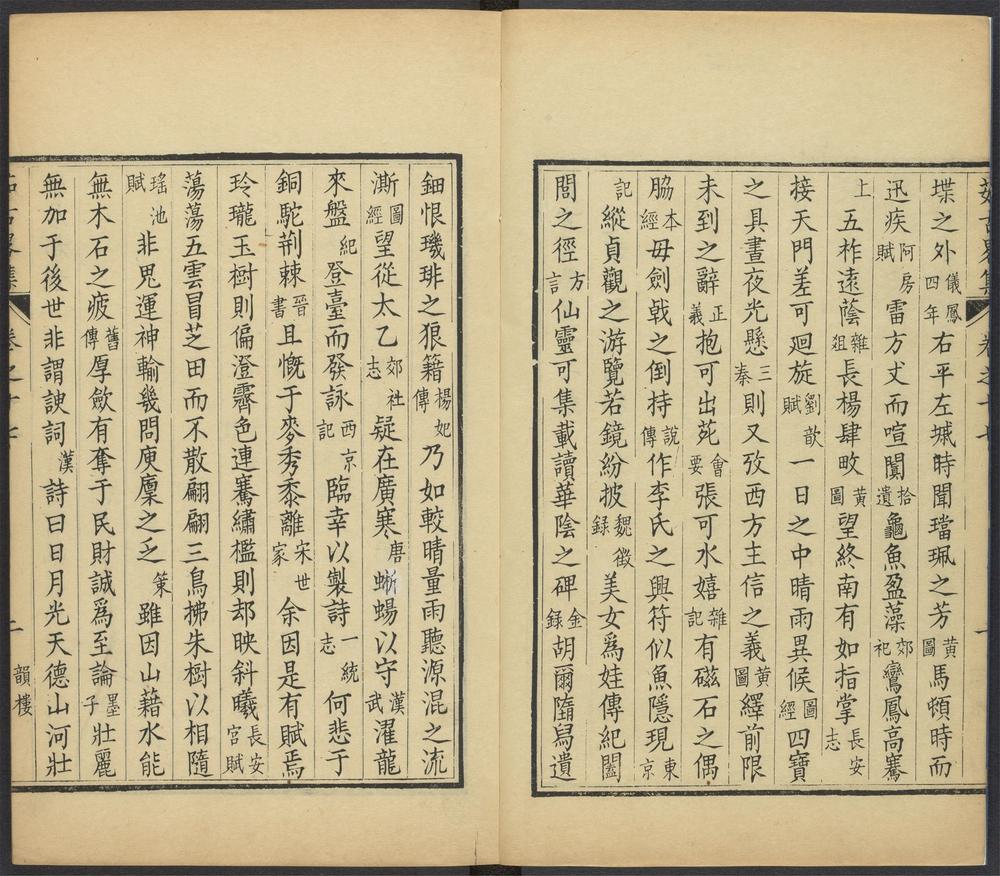 堞之外儀鳳四年右平左墄時聞璫珮之芳黃圖馬頓時而
迅疾阿房賦雷方丈而喧闐拾遺龜魚盈藻郊祀鸞鳳高騫
上五柞遠蔭雜俎長楊肆畋黃圖望終南有如指掌長安志
接天門差可廻旋劉歆賦一日之中晴雨異候圖經四寶
之具晝夜光懸三秦則又攷西方主信之義黃圖繹前限
未到之辭正義抱可出苑會要張可水嬉雜記有磁石之偶
脇本經毋劍戟之倒持說傳作李氏之興符似魚隱現東京
記縱貞觀之游覽若鏡紛披魏徵錄美女爲娃傳紀闔
閭之徑方言仙靈可集載讀華陰之碑金錄胡爾隨舄遺
鈿恨璣琲之狼籍楊妃傳乃如較晴量雨聽源混之流
澌圖經望從太乙郊社志疑在廣寒唐蜥蜴以守漢武濯龍
來盤紀登臺而發詠西京記臨幸以製詩一統志何悲于
銅駝荆棘晉書且慨于麥秀黍離宋世家余因是有賦焉
玲瓏玉樹則偏澄霽色連騫繡檻則却映斜曦長安宮賦
蕩蕩五雲冒芝田而不散翩翩三鳥拂朱樹以相隨
瑤池賦非鬼運神輸幾問庾廩之乏策雖因山藉水能
無木石之疲舊傳厚歛有奪于民財誠爲至論墨子壯麗
無加于後世非謂諛詞漢詩曰日月光天德山河壯
卷之十七
一
二
韻樓